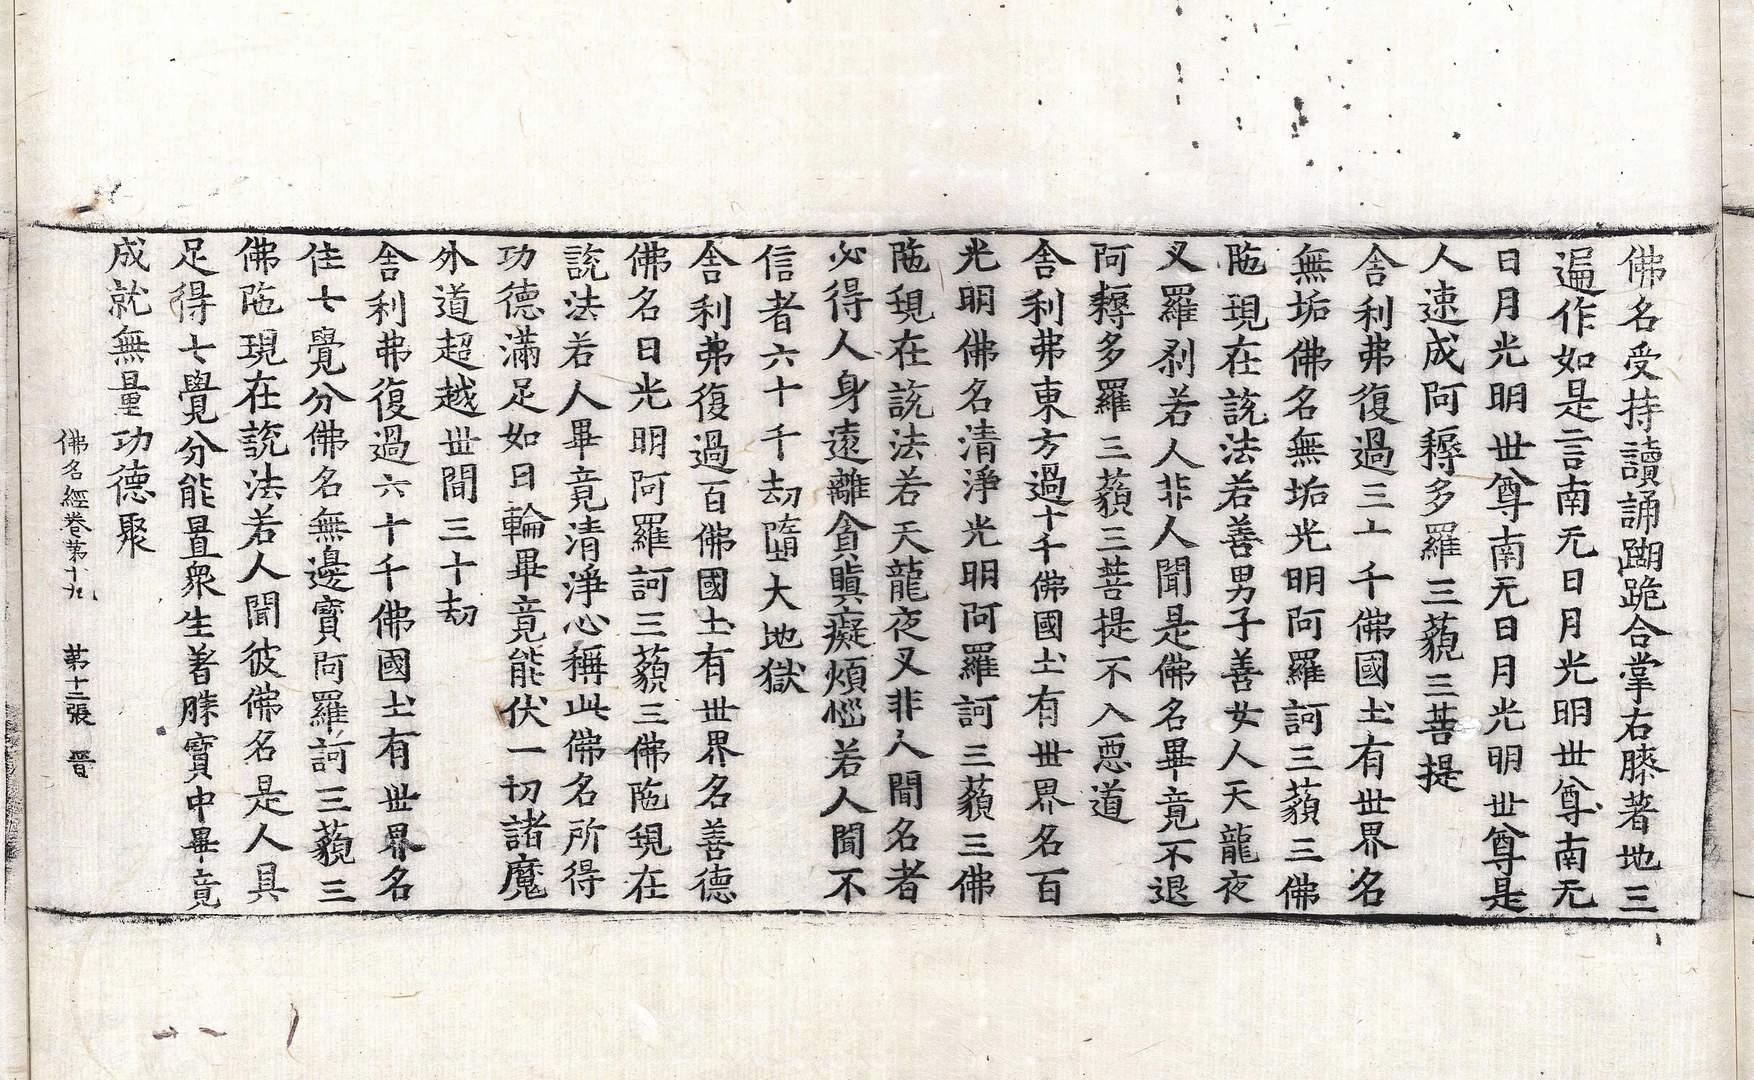 佛名受持讀誦蹋跪合掌右膝著地三
遍作如是言南无日月光明世尊南无
日月光明世尊南无日月光明世尊是
人速成阿耨多羅三藐三菩提
舍利弗復過三十千佛國土有世界名
無垢佛名無垢光明阿羅訶三藐三佛
陁現在說法若善男子善女人天龍夜
叉羅剎若人非人聞是佛名畢竟不退
阿耨多羅三藐三菩提不入惡道
舍利弗東方過十千佛國土有世界名百
光明佛名清淨光明阿羅訶三藐三佛
陁現在說法若天龍夜叉非人聞名者
必得人身遠離貪瞋癡煩惱若人聞不
信者六十千劫墮大地獄
舍利弗復過百佛國土有世界名善德
佛名日光明阿羅訶三藐三佛陁現在
說法若人畢竟清淨心稱此佛名所得
功德滿足如日輪畢竟能伏一切諸魔
外道超越世間三十劫
舍利弗復過六十千佛國土有世界名
住七覺分佛名無邊寶阿羅訶三藐三
佛陁現在說法若人聞彼佛名是人具
足得七覺分能置衆生著勝寶中畢竟
成就無量功德聚
佛名經卷第十九 第十二張 晉